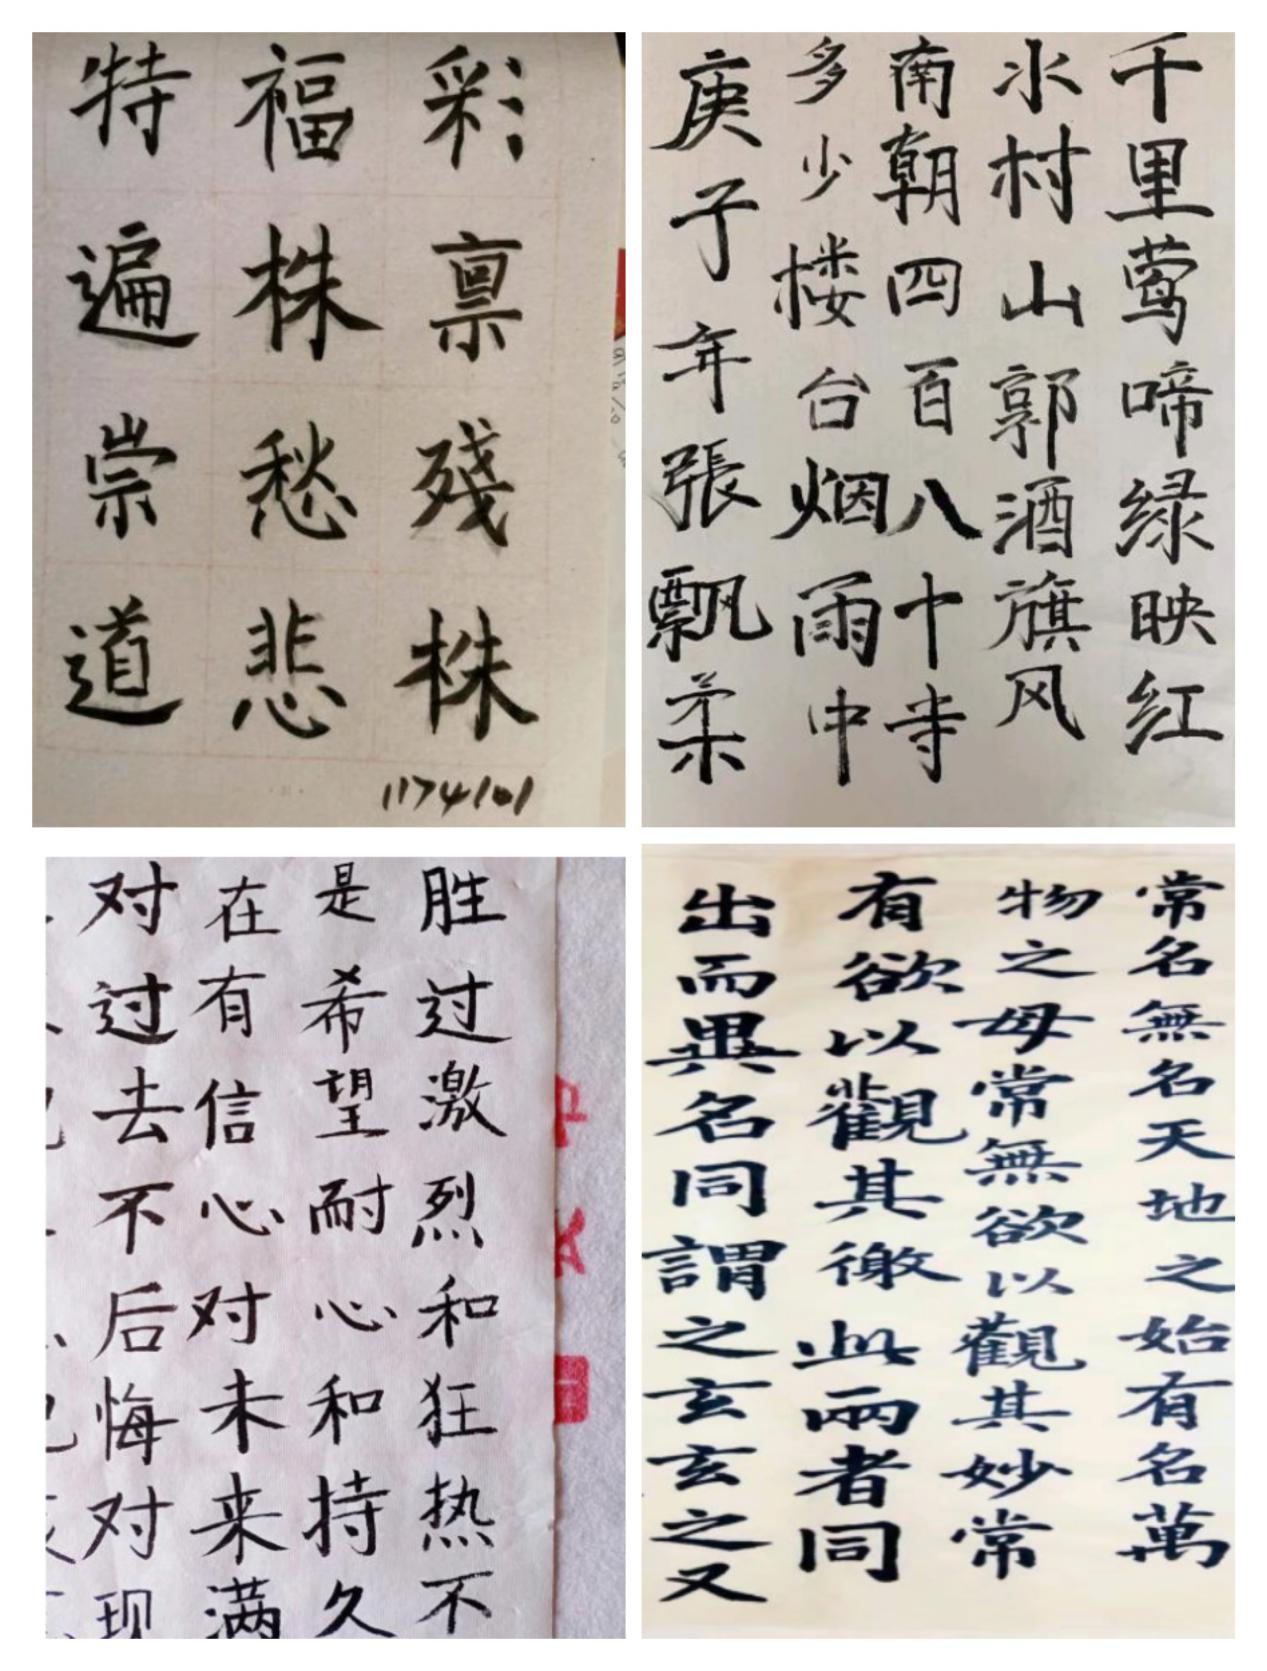 彩禀殘株
福株愁悲
特遍崇道
1174101
千里莺啼绿映红
水村山郭酒旗风
南朝四百八十寺
多少楼台烟雨中
庚子年張飘柔
胜过激烈和狂热不
是希望耐心和持久
在有信心对未来满
对过去不后悔对现
常名無名天地之始有名萬
物之母常無欲以觀其妙常
有欲以觀其徼此兩者同
出而異名同謂之玄玄之又